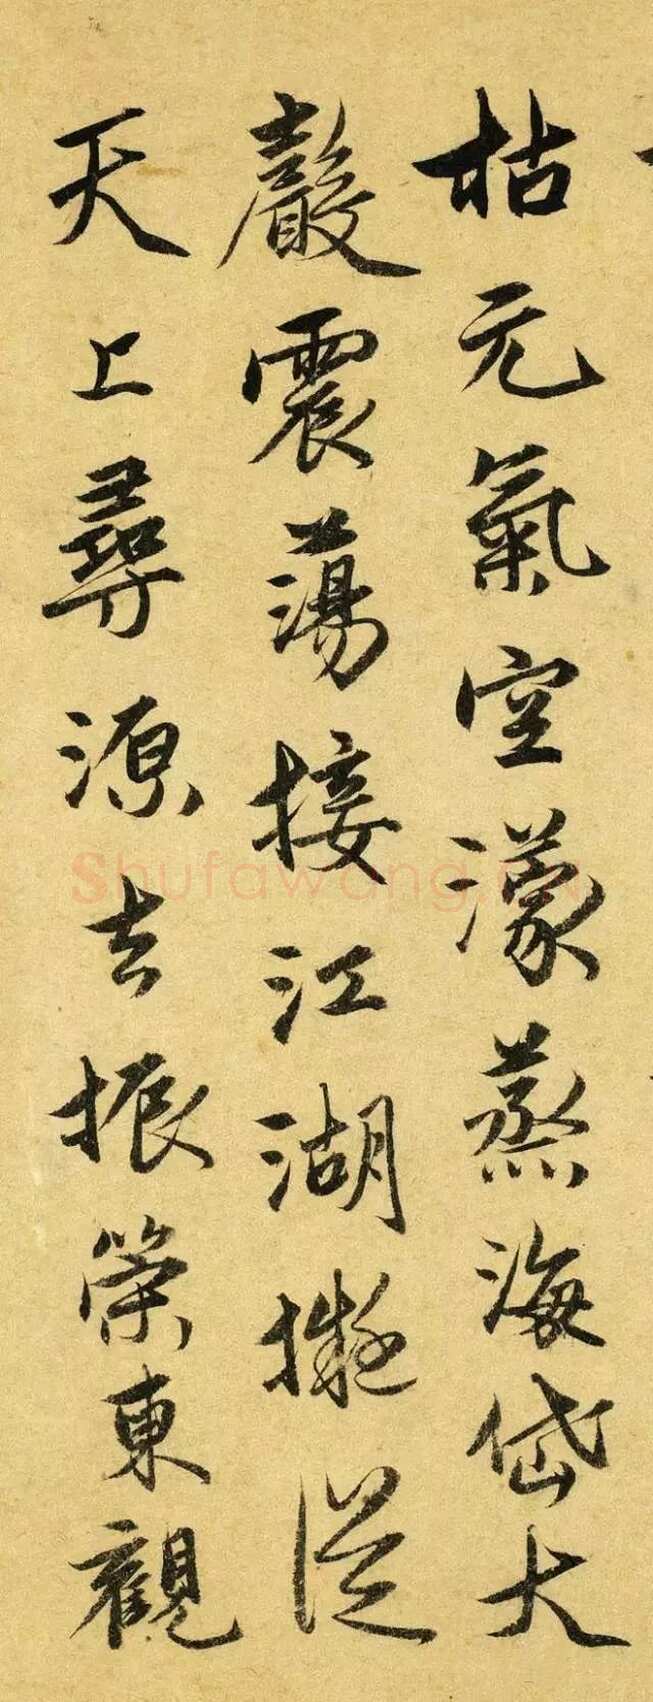 枯元氣空濛蒸海岱大
聲震蕩接江湖擬從
天上尋源去振策東觀
Shufawang.CN